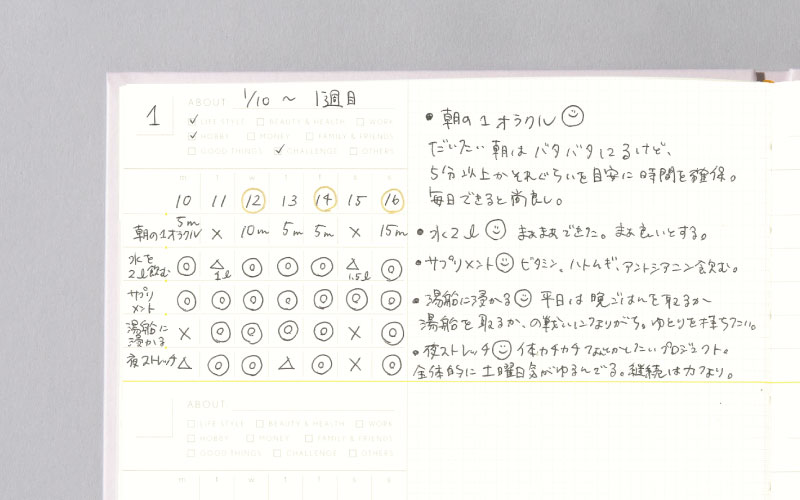 1
ABOUT 1/10 〜 1週目
LIFE STYLE BEAUTY & HEALTH WORK
HOBBY MONEY FAMILY & FRIENDS
GOOD THINGS CHALLENGE OTHERS
m t w t f s s
10 11 12 13 14 15 16
朝の1オラクル 5m × 10m 5m 5m × 15m
水を2ℓ飲む ◎ △1ℓ ◎ ◎ ◎ △1.5ℓ ◎
サプリメント ◎ ◎ ◎ ◎ ◎ ◎ ◎
湯船に浸かる × ◎ ◎ ◎ ◎ × ◎
夜ストレッチ △ ◎ ◎ △ ◎ × ◎
• 朝の1オラクル
だいたい朝はバタバタしてるけど、
5分以上かそれぐらいを目安に時間を確保。
毎日できると尚良し。
• 水2ℓ まぁまぁできた。まぁ良いとする。
• サプリメント ビタミン、ハトムギ、アントシアニン飲む。
• 湯船に浸かる 平日は晩ごはんを取るか
湯船を取るか、の戦いになりがち。ゆとりを持ちたい。
• 夜ストレッチ 体カチカチなんとかしたいプロジェクト。
全体的に土曜日気がゆるんでる。継続は力なり。
ABOUT
LIFE STYLE BEAUTY & HEALTH WORK
HOBBY MONEY FAMILY & FRIENDS
GOOD THINGS CHALLENGE OTHERS
m t w t f s s